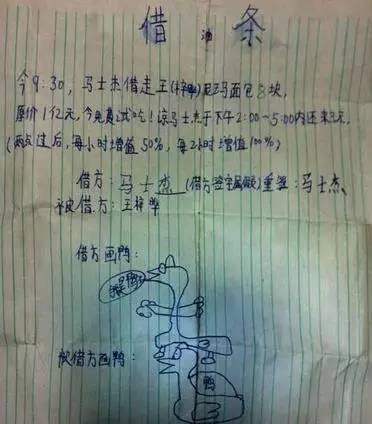 借条
油
今9:30，马士杰借走王(梓晔)尼玛面包8块，
原价1亿元，今免费试吃！让马士杰于下午2:00~5:00内还来3元，
(两点过后，每小时增值50%，每2小时增值100%)
借方：马士杰 (借方签字)重签：马士杰、
被借方：王梓晔
借方画鸭：
是鸭
被借方画鸭：
鸭